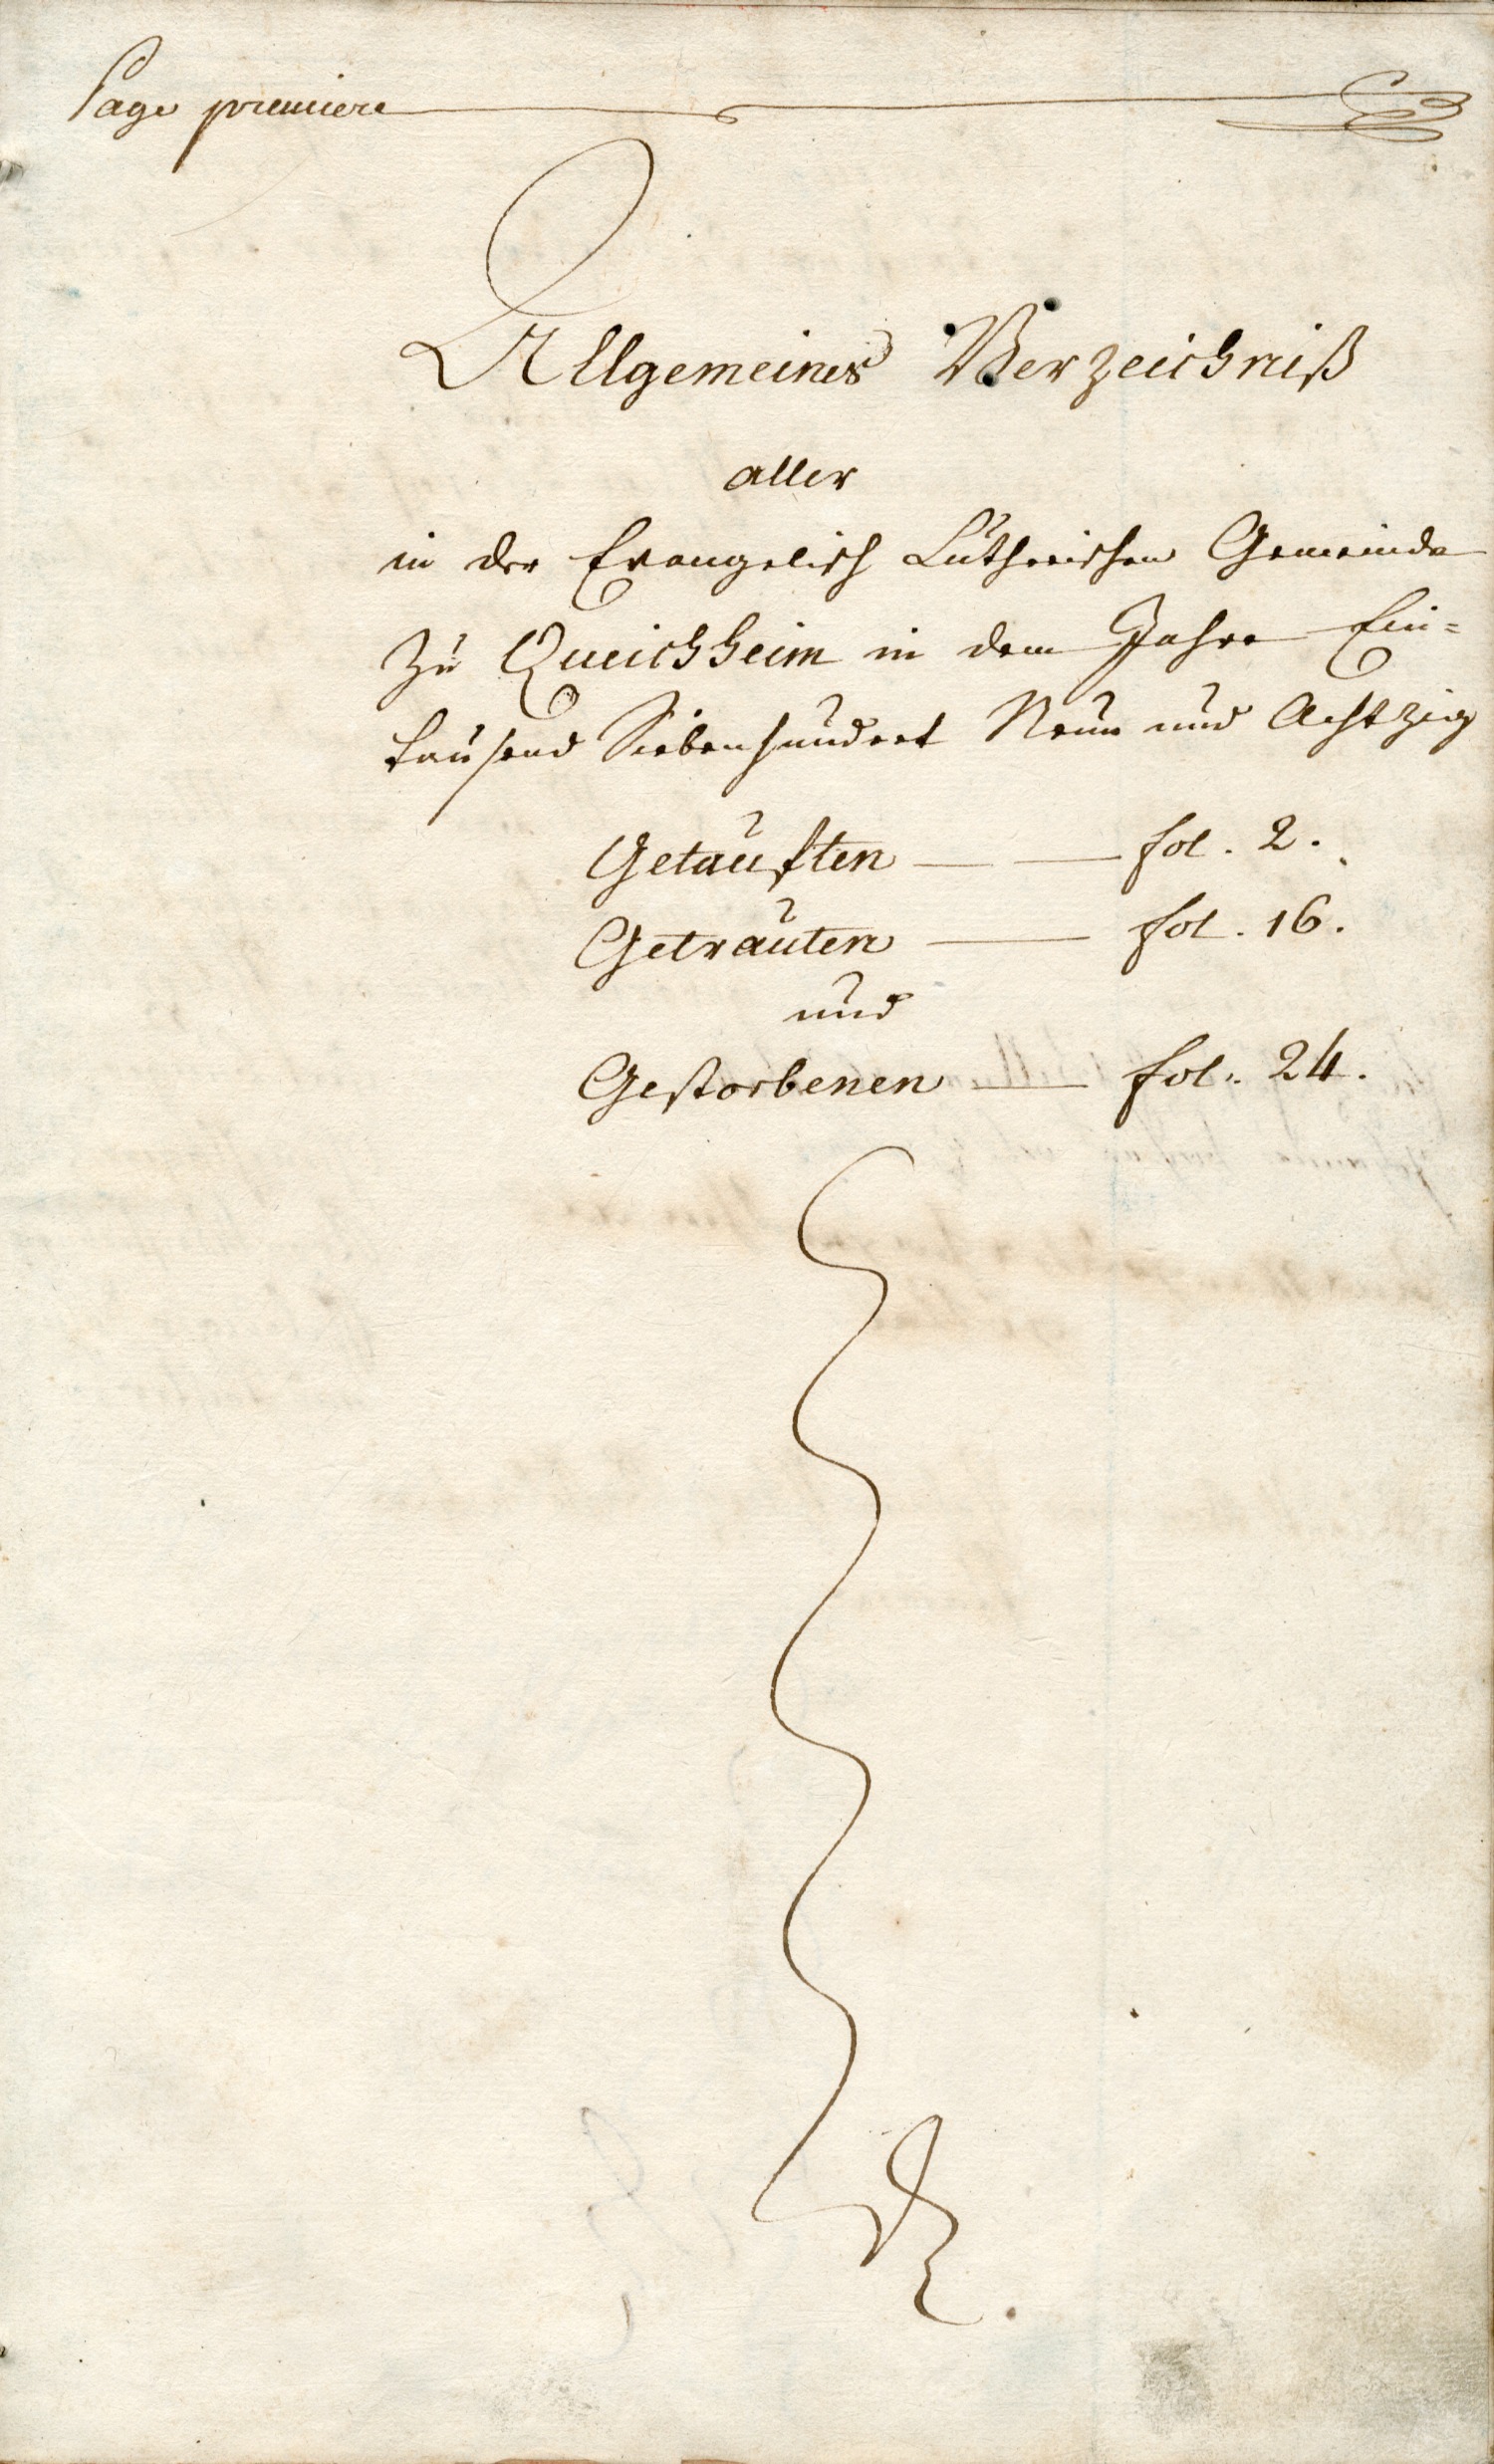 Page premiere
Allgemeines Verzeichniß
aller
in der Evangelisch Lutherischen Gemeinde
zu Queichheim in dem Jahre Ein=
tausend Siebenhundert Neun und Achtzig
Getauften — — fol. 2.
Getrauten — fol. 16.
und
Gestorbenen — fol. 24.